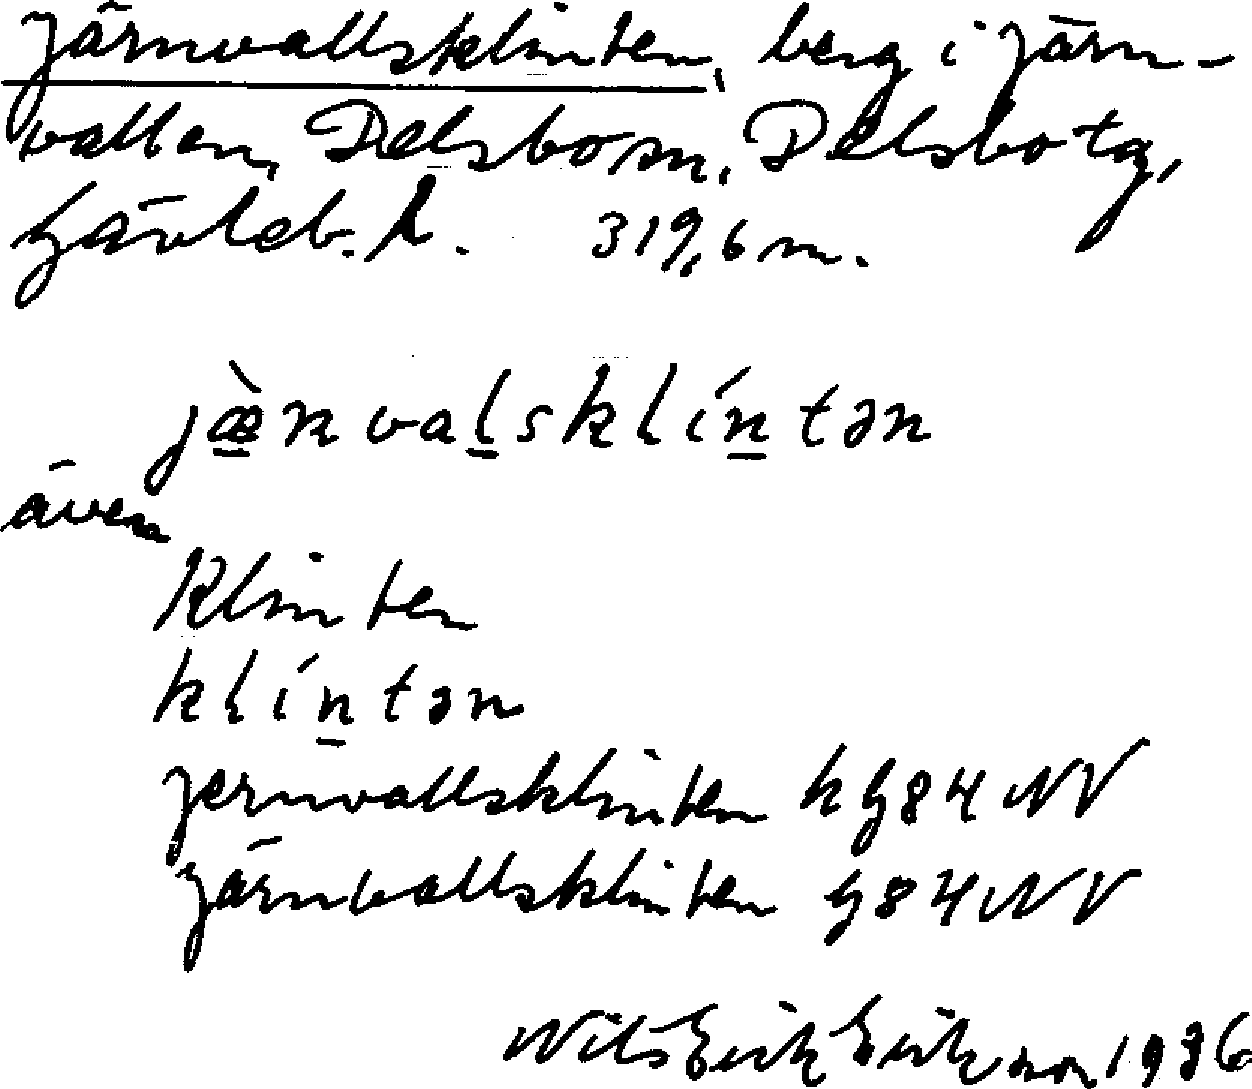 Järnvallsklinten, berg i Järn-
vallen, Delsbo sn, Delsbo tg,
Gävleb. l. 319,6 m.
jæ̠̀nval̠sklín̠tən
även
Klinten
klín̠tən
Jernvallsklinten h G84NV
Järnvallsklinten G84NV
Nils Erik Eriksson 1936